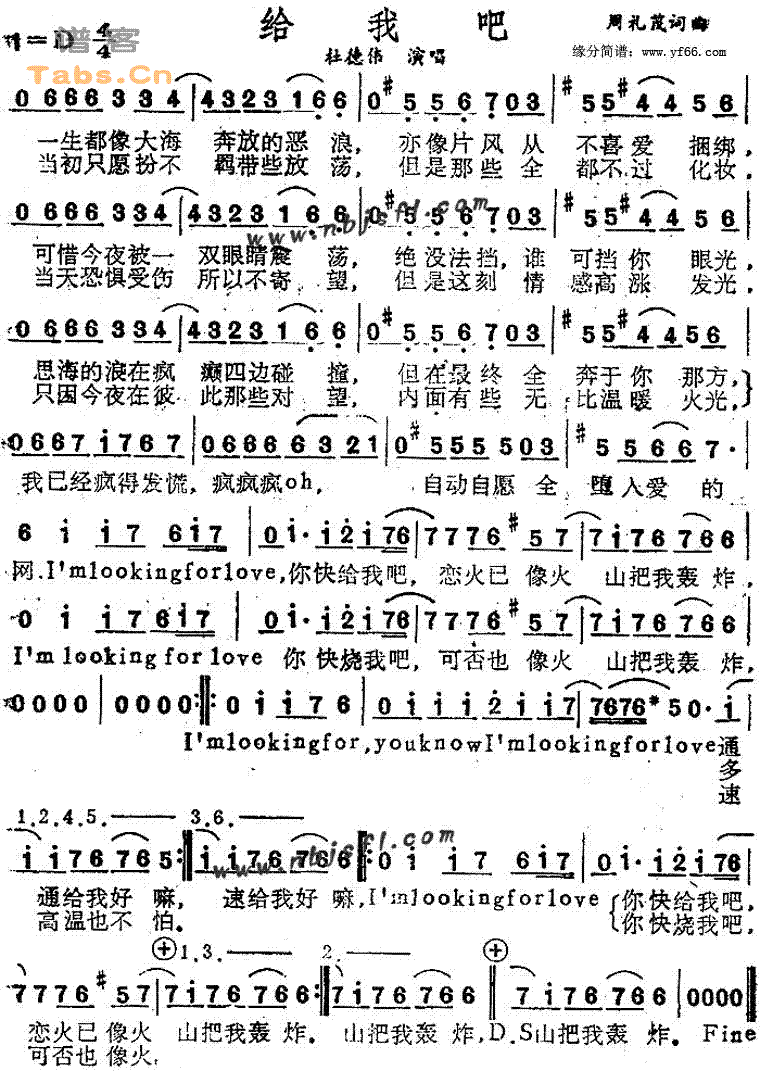 给我吧
周礼茂词曲
1=D 4/4
谱客
Tabs.Cn
杜德伟 演唱
缘分简谱：www.yf66.com
0 666 3 34 | 4323 1 66 | 0 #5 5 6 7 03 | #55 #44 45 6
一生都像大海 奔放的恶 浪, 亦像片风从 不喜爱 捆绑,
当初只愿扮不 羁带些放 荡, 但是那些全 都不过 化妆,
0 666 334 | 4323 1 66 | 0 #5 5 6 7 03 | #55 #44 5 6
www.nbjsfl.com
可惜今夜被一 双眼睛震 荡, 绝没法挡,谁 可挡你 眼光,
当天恐惧受伤 所以不寄 望, 但是这刻情 感高涨 发光,
0666 334 | 4323 166 | 0 #5 5 6 7 03 | #55 #44 56
思海的浪在疯 癫四边碰 撞, 但在最终全 奔于你 那方,
只因今夜在彼 此那些对 望, 内面有些无 比温暖 火光,
0667 i767 | 0666 6 3 21 | 0 #555 503 | #55 66 7·
我已经疯得发慌, 疯疯疯oh, 自动自愿全 堕入爱的
6 i i7 6i7 | 0i· i2i76 | 7776 #57 | 7i76 766
网.I'mlookingforlove,你快给我吧, 恋火已像火 山把我轰炸,
0 i i7 6i7 | 0i· i2i76 | 7776 #57 | 7i76 766
I'm looking for love 你快烧我吧, 可否也像火 山把我轰炸,
0000 | 0000 :||: 0 i i76 | 0 i i i 2 i i7 | 7676* 50· i
I'mlookingfor,youknowI'mlookingforlove通
多
速
1.2.4.5. 3.6.
i i76 765 :|| i i76 766 :|| 0 i i7 6i7 | 0i· i2i76
www.nbjsfl.com
通给我好嘛, 速给我好嘛,I'mlookingforlove 你快给我吧,
高温也不怕. 你快烧我吧,
1,3. 2.
7776 #57 | 7i76 766 :|| 7i76 766 || 7i76 766 | 0000 ||
恋火已像火 山把我轰炸. 山把我轰炸,D.S山把我轰炸. Fine
可否也像火